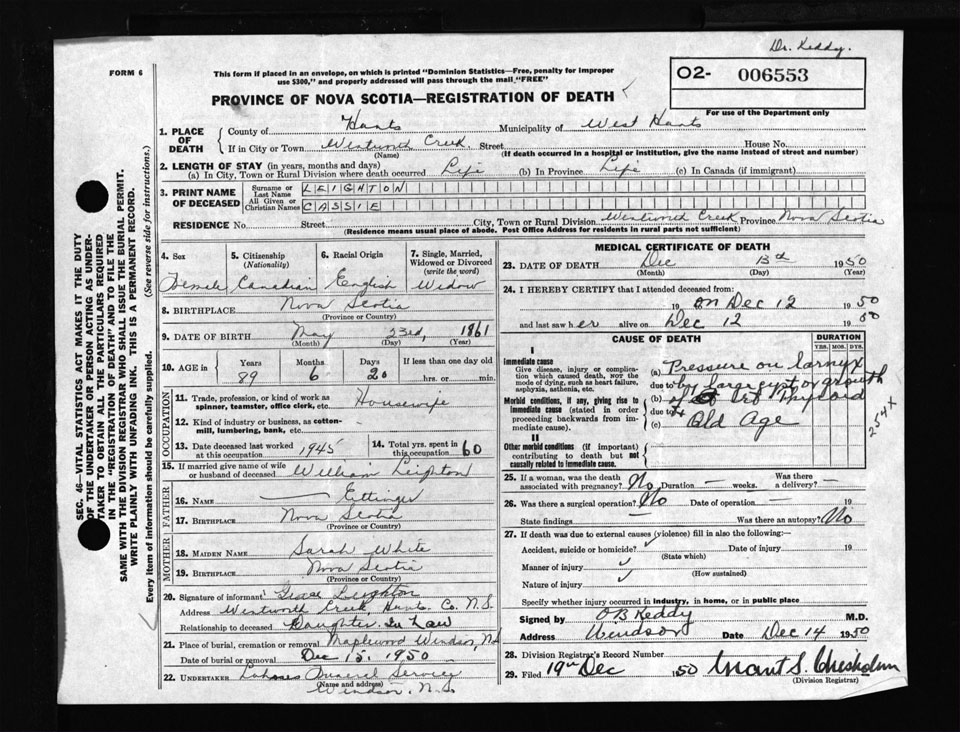 Dr. Keddy.
FORM 6
This form if placed in an envelope, on which is printed "Dominion Statistics—Free, penalty for improper
use $300," and properly addressed will pass through the mail "FREE"
02- 006553
For use of the Department only
PROVINCE OF NOVA SCOTIA—REGISTRATION OF DEATH
1. PLACE OF DEATH
County of Hants Municipality of West Hants
If in City or Town Wentworth Creek Street House No.
(Name) (If death occurred in a hospital or institution, give the name instead of street and number)
2. LENGTH OF STAY (in years, months and days)
(a) In City, Town or Rural Division where death occurred Life (b) In Province Life (c) In Canada (if immigrant)
3. PRINT NAME OF DECEASED
Surname or Last Name LEIGHTON
All Given or Christian Names CASSIE
RESIDENCE No. Street City, Town or Rural Division Wentworth Creek Province Nova Scotia
(Residence means usual place of abode. Post Office Address for residents in rural parts not sufficient)
4. Sex Female
5. Citizenship (Nationality) Canadian
6. Racial Origin English
7. Single, Married, Widowed or Divorced (write the word) Widow
8. BIRTHPLACE Nova Scotia
(Province or Country)
9. DATE OF BIRTH May 23rd, 1861
(Month) (Day) (Year)
10. AGE in Years 89 Months 6 Days 20 If less than one day old hrs. or min.
OCCUPATION
11. Trade, profession, or kind of work as spinner, teamster, office clerk, etc. Housewife
12. Kind of industry or business, as cotton-mill, lumbering, bank, etc.
13. Date deceased last worked at this occupation 1945
14. Total yrs. spent in this occupation 60
15. If married give name of wife or husband of deceased William Leighton
FATHER
16. NAME — Ettinger
17. BIRTHPLACE Nova Scotia
(Province or Country)
MOTHER
18. MAIDEN NAME Sarah White
19. BIRTHPLACE Nova Scotia
(Province or Country)
20. Signature of informant Leighton
Address Wentworth Creek Hants Co. N.S.
Relationship to deceased Daughter. In Law
21. Place of burial, cremation or removal Maplewood Windsor, N.S
Date of burial or removal Dec 15, 1950
22. UNDERTAKER Funeral Service
(Name and address)
Windsor, N.S.
MEDICAL CERTIFICATE OF DEATH
23. DATE OF DEATH Dec 13th 1950
(Month) (Day) (Year)
24. I HEREBY CERTIFY that I attended deceased from:
19 on Dec 12 1950
and last saw her alive on Dec 12 1950
CAUSE OF DEATH
DURATION
YRS. MOS. DYS.
I
Immediate cause
Give disease, injury, or complication which caused death, NOT the mode of dying, such as heart failure, asphyxia, asthenia, etc.
Morbid conditions, if any, giving rise to immediate cause (stated in order proceeding backwards from immediate cause).
II
Other morbid conditions (if important) contributing to death but not causally related to immediate cause.
(a) Pressure on larnyx
due to by large cyst or growth
(b) of Thyroid
due to
(c) Old Age
254x
25. If a woman, was the death associated with pregnancy? No Duration — weeks. Was there a delivery? —
26. Was there a surgical operation? No Date of operation — 19
State findings — Was there an autopsy? No
27. If death was due to external causes (violence) fill in also the following:—
Accident, suicide or homicide? Date of injury 19
(State which)
Manner of injury
(How sustained)
Nature of injury
Specify whether injury occurred in industry, in home, or in public place
Signed by O B Keddy M.D.
Address Windsor Date Dec 14 1950
28. Division Registrar's Record Number
29. Filed 19th Dec 1950 Grant S. Chisholm
(Division Registrar)
SEC. 46—VITAL STATISTICS ACT MAKES IT THE DUTY
OF THE UNDERTAKER OR PERSON ACTING AS UNDER-
TAKER TO OBTAIN ALL THE PARTICULARS REQUIRED
IN THE "REGISTRATION OF DEATH" AND TO FILE THE
SAME WITH THE DIVISION REGISTRAR WHO SHALL ISSUE THE BURIAL PERMIT.
WRITE PLAINLY WITH UNFADING INK. THIS IS A PERMANENT RECORD.
Every item of information should be carefully supplied. (See reverse side for instructions.)